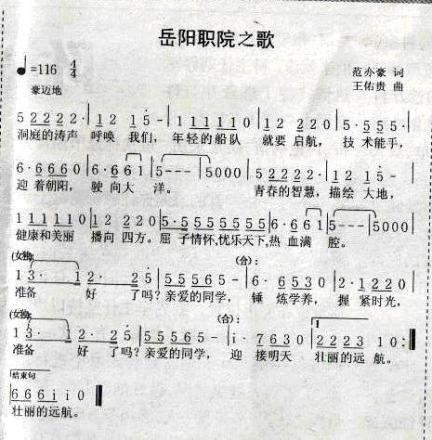 岳阳职院之歌
♩=116 4/4
范亦豪 词
豪迈地
王佑贵 曲
5 2 2 2 2 · | 1 2 1 5 - | 1 1 1 1 1 0 | 1 2 2 2 0 | 5 · 5 5 5 · |
洞庭的涛声 呼唤 我们, 年轻的船队 就要 启航, 技 术能手,
6 · 6 6 6 0 | 6 · 6 6 1 | 5 - - - | 5 0 0 0 | 5 2 2 2 2 · | 1 2 1 5 - |
迎 着朝阳, 驶 向大 洋。 青春的智慧, 描绘 大地,
1 1 1 1 1 0 | 1 2 2 2 0 | 5 · 5 5 5 5 5 5 5 | 6 · 6 6 1 | 5 - - - | 5 0 0 0 |
健康和美丽 播向 四方。屈 子情怀,忧乐天下,热 血满 腔。
1 3 · 1 2 · 2 5 | 5 5 5 6 5 - | 6 · 6 5 3 0 | 2 · 1 2 2 0 |
(合):
准备 好 了吗? 亲爱的同学, 锤 炼学养, 握 紧时光,
1 3 · 1 2 · 2 5 | 5 5 5 6 5 - | i · 7 6 3 0 | 2 2 2 3 1 0 :|
(合):
准备 好 了吗? 亲爱的同学, 迎 接明天 壮丽的远 航。
结束句
6 6 6 i i 0
壮丽的远航。